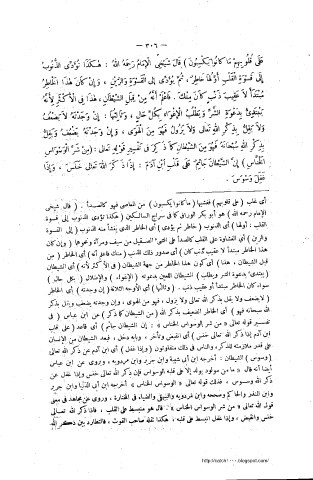 — ٣٠٦ —
عَلَى قُلُوبِهِمْ مَا كَانُوا يَكْسِبُونَ ) قَالَ شَيْخِي الْإِمَامُ رَحِمَهُ اللهُ : هٰكَذَا تُؤَدِّي الذُّنُوبُ
إِلَى قَسْوَةِ الْقَلْبِ أَوَّلُهَا خَاطِرٌ، ثُمَّ يُؤَدِّي إِلَى الْقَسْوَةِ وَالرَّيْنِ ، وَإِنْ كَانَ هٰذَا الْخَاطِرُ
مُبْتَدَأً لَا عَقِيبَ ذَنْبٍ كَانَ مِنْكَ . فَاعْلَمْ أَنَّهُ مِنْ قِبَلِ الشَّيْطَانِ، هٰذَا فِي الْأَكْثَرِ لِأَنَّهُ
يَبْتَدِئُ بِدَعْوَةِ الشَّرِّ وَيَطْلُبُ الْإِغْوَاءَ بِكُلِّ حَالٍ ، وَثَالِثُهَا : إِنْ وَجَدْتَهُ لَا يَضْعُفُ
وَلَا يَقِلُّ بِذِكْرِ اللهِ تَعَالَى وَلَا يَزُولُ فَهُوَ مِنَ الْهَوَى ، وَإِنْ وَجَدْتَهُ يَضْعُفُ وَيَقِلُّ
بِذِكْرِ اللهِ سُبْحَانَهُ فَهُوَ مِنَ الشَّيْطَانِ كَمَا ذُكِرَ فِي تَفْسِيرِ قَوْلِهِ تَعَالَى : (مِنْ شَرِّ الْوَسْوَاسِ
الْخَنَّاسِ ) إِنَّ الشَّيْطَانَ جَاثِمٌ عَلَى قَلْبِ ابْنِ آدَمَ : إِذَا ذَكَرَ اللهَ تَعَالَى خَنَسَ ، وَإِذَا
غَفَلَ وَسْوَسَ .
أي غلب ( على قلوبهم ) فغشيها ( ما كانوا يكسبون ) من المعاصي فهو كالصدأ . ( قال شيخي
الإمام رحمه الله ) هو أبو بكر الوراق في سراج السالكين ( هكذا تؤدي الذنوب إلى قسوة
القلب : أولها ) أي الذنوب ( خاطر ثم يؤدي ) أي الخاطر الذي ينشأ عنه الذنوب ( إلى القسوة
والرين ) أي الغشاوة على القلب كالصدأ على الشيء الصقيل من سيف ومرآة ونحوها ( وإن كان
هذا الخاطر مبتدأ لا عقيب ذنب كان ) أي صدور ذلك الذنب ( منك فاعلم أنه ) أي الخاطر ( من
قبل الشيطان ، هذا ) أي كون هذا الخاطر من جهة الشيطان ( في الأكثر لأنه ) أي الشيطان
( يبتدىء بدعوة الشر ويطلب ) الشيطان اللعين بدعوته ( الإغواء ) والإضلال ( بكل حال )
سواء كان الخاطر مبتدأ أو عقيب ذنب . ( وثالثها ) أي الأوجه الثلاثة ( إن وجدته ) أي الخاطر
( لا يضعف ولا يقل بذكر الله تعالى ولا يزول ، فهو من الهوى ، وإن وجدته يضعف ويقل بذكر
الله سبحانه فهو ) أي الخاطر الضعيف بذكر الله ( من الشيطان كما ذكر ) عن ابن عباس ( في
تفسير قوله تعالى « من شر الوسواس الخناس » : إن الشيطان جاثم ) أي قاعد ( على قلب
ابن آدم إذا ذكر الله تعالى خنس ) أي انقبض وتأخر ، وبابه دخل ، فبعد الشيطان من الإنسان
على قدر ملازمته للذكر، والناس في ذلك متفاوتون ( وإذا غفل ) أي ابن آدم عن ذكر الله تعالى
( وسوس ) الشيطان . أخرجه ابن أبي شيبة وابن جرير وابن مردويه عن ابن عباس . وروى عن ابن عباس
أيضا أنه قال « ما من مولود يولد إلا على قلبه الوسواس فإن ذكر الله تعالى خنس وإذا غفل عن
ذكر الله وسوس ، فذلك قوله تعالى « الوسواس الخناس » أخرجه ابن أبي الدنيا وابن جرير
وابن المنذر والحاكم وصححه وابن مردويه والبيهقي والضياء في المختارة . وروى عن مجاهد في معنى
قول الله تعالى « من شر الوسواس الخناس » قال هو منبسط على القلب ، فإذا ذكر الله تعالى
خنس وانقبض وإذا غفل انبسط على قلبه ، هكذا نقله صاحب القوت ، فالتطارد بين ذكر الله